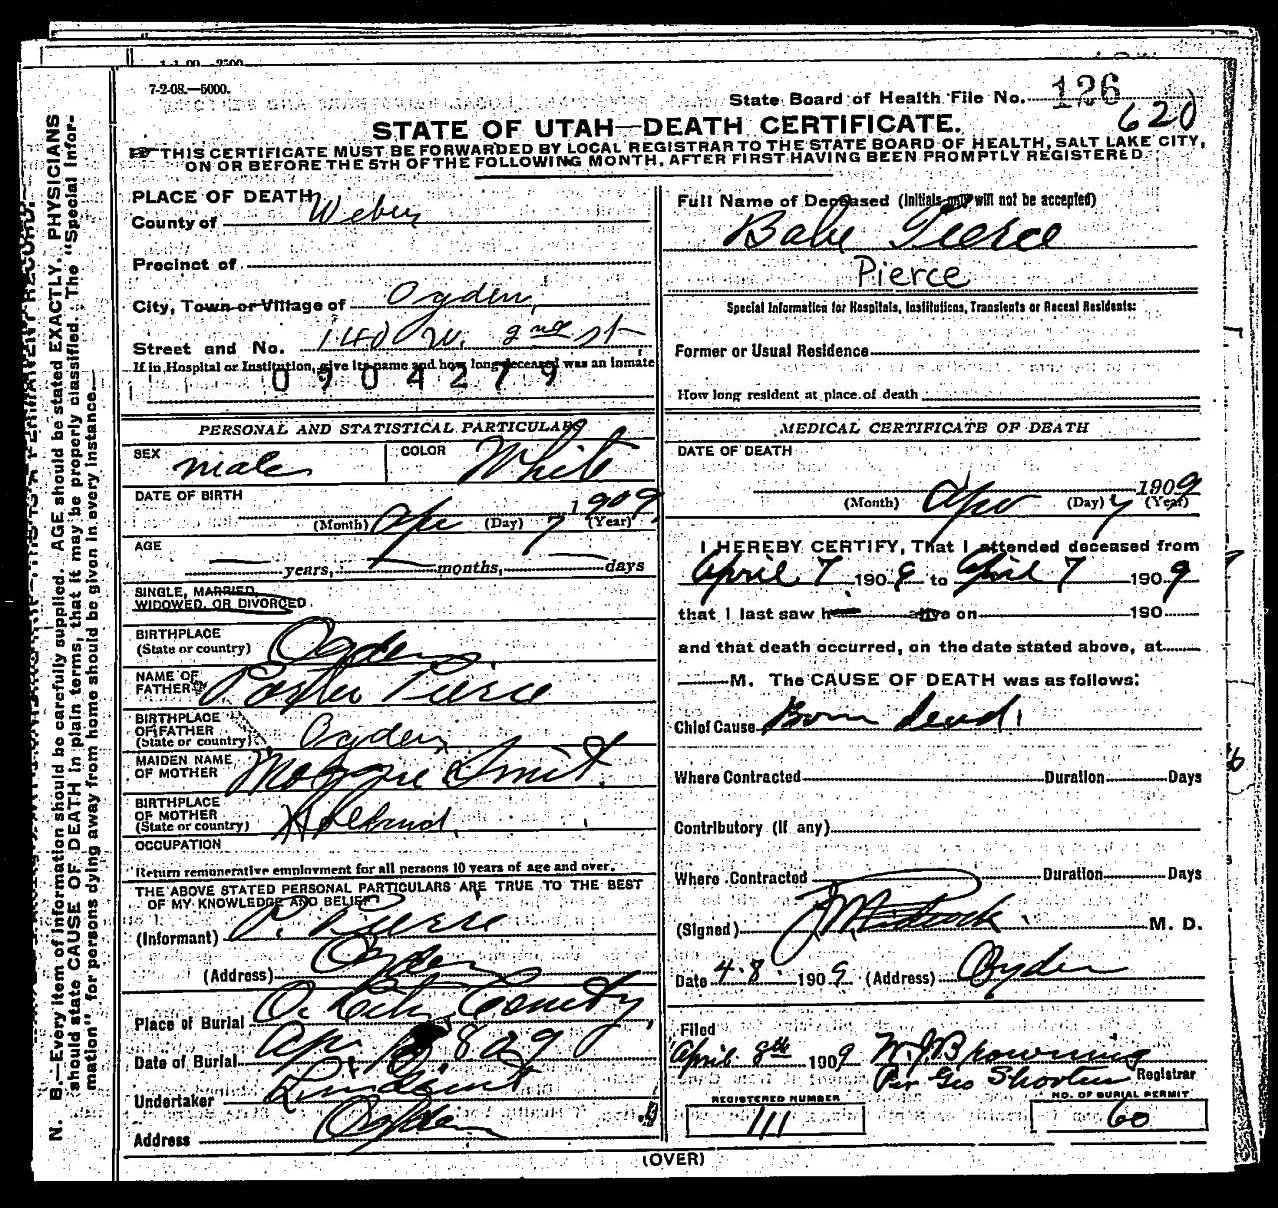 7-2-08.—5000.
State Board of Health File No. 126
620
STATE OF UTAH—DEATH CERTIFICATE.
THIS CERTIFICATE MUST BE FORWARDED BY LOCAL REGISTRAR TO THE STATE BOARD OF HEALTH, SALT LAKE CITY,
ON OR BEFORE THE 5TH OF THE FOLLOWING MONTH, AFTER FIRST HAVING BEEN PROMPTLY REGISTERED.
N. B.—Every item of information should be carefully supplied. AGE should be stated EXACTLY. PHYSICIANS
should state CAUSE OF DEATH in plain terms, that it may be properly classified. The "Special Infor-
mation" for persons dying away from home should be given in every instance.
PLACE OF DEATH
County of Weber
Precinct of
City, Town or Village of Ogden
Street and No. 140 W. 2nd st
If in Hospital or Institution, give its name and how long deceased was an inmate
0904279
PERSONAL AND STATISTICAL PARTICULARS
SEX male COLOR White
DATE OF BIRTH
(Month) Apr (Day) 7 1909 (Year)
AGE
years, months, days
SINGLE, MARRIED,
WIDOWED, OR DIVORCED.
BIRTHPLACE
(State or country) Ogden
NAME OF
FATHER Pierce
BIRTHPLACE
OF FATHER
(State or country) Ogden
MAIDEN NAME
OF MOTHER Maggie Smit
BIRTHPLACE
OF MOTHER
(State or country) Holland
OCCUPATION
Return remunerative employment for all persons 10 years of age and over.
THE ABOVE STATED PERSONAL PARTICULARS ARE TRUE TO THE BEST
OF MY KNOWLEDGE AND BELIEF
(Informant) P. Pierce
(Address) Ogden
Place of Burial O. City
Date of Burial Apr. 8 09
Undertaker Lindquist
Address Ogden
Full Name of Deceased (Initials only will not be accepted)
Babe Pierce
Pierce
Special Information for Hospitals, Institutions, Transients or Recent Residents:
Former or Usual Residence
How long resident at place of death
MEDICAL CERTIFICATE OF DEATH
DATE OF DEATH
(Month) Apr (Day) 7 1909 (Year)
I HEREBY CERTIFY, That I attended deceased from
April 7 1909 to April 7 1909
that I last saw h alive on 190
and that death occurred, on the date stated above, at
M. The CAUSE OF DEATH was as follows:
Chief Cause Born dead
Where Contracted Duration Days
Contributory (if any)
Where Contracted Duration Days
(Signed) M. D.
Date 4-8- 1909 (Address) Ogden
Filed
April 8th 1909 W. J. Browning
Per Geo Shorten Registrar
REGISTERED NUMBER
111
NO. OF BURIAL PERMIT
60
(OVER)